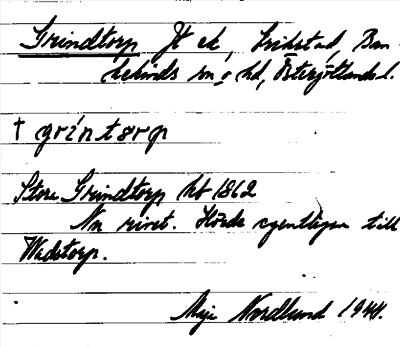 Grindtorp Jt ek, Svinstad, Ban-
kekinds sn o hd, Östergötlands l.
† grintorp
Stora Grindtorp hb 1862
Nu rivet. Hörde egentligen till
Wadstorp.
Maja Nordlund 1941.